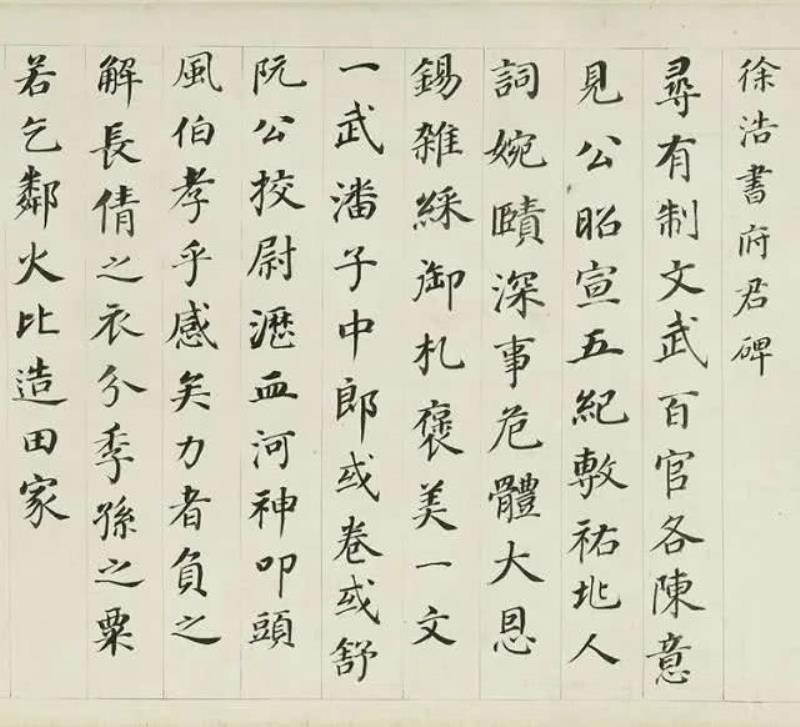 徐浩書府君碑
尋有制文武百官各陳意
見公昭宣五紀敷祐兆人
詞婉賾深事危體大恩
錫雜綵御札褒美一文
一武潘子中郎或卷或舒
阮公挍尉瀝血河神叩頭
風伯孝乎感矣力者負之
解長倩之衣分季孫之粟
若乞鄰火比造田家